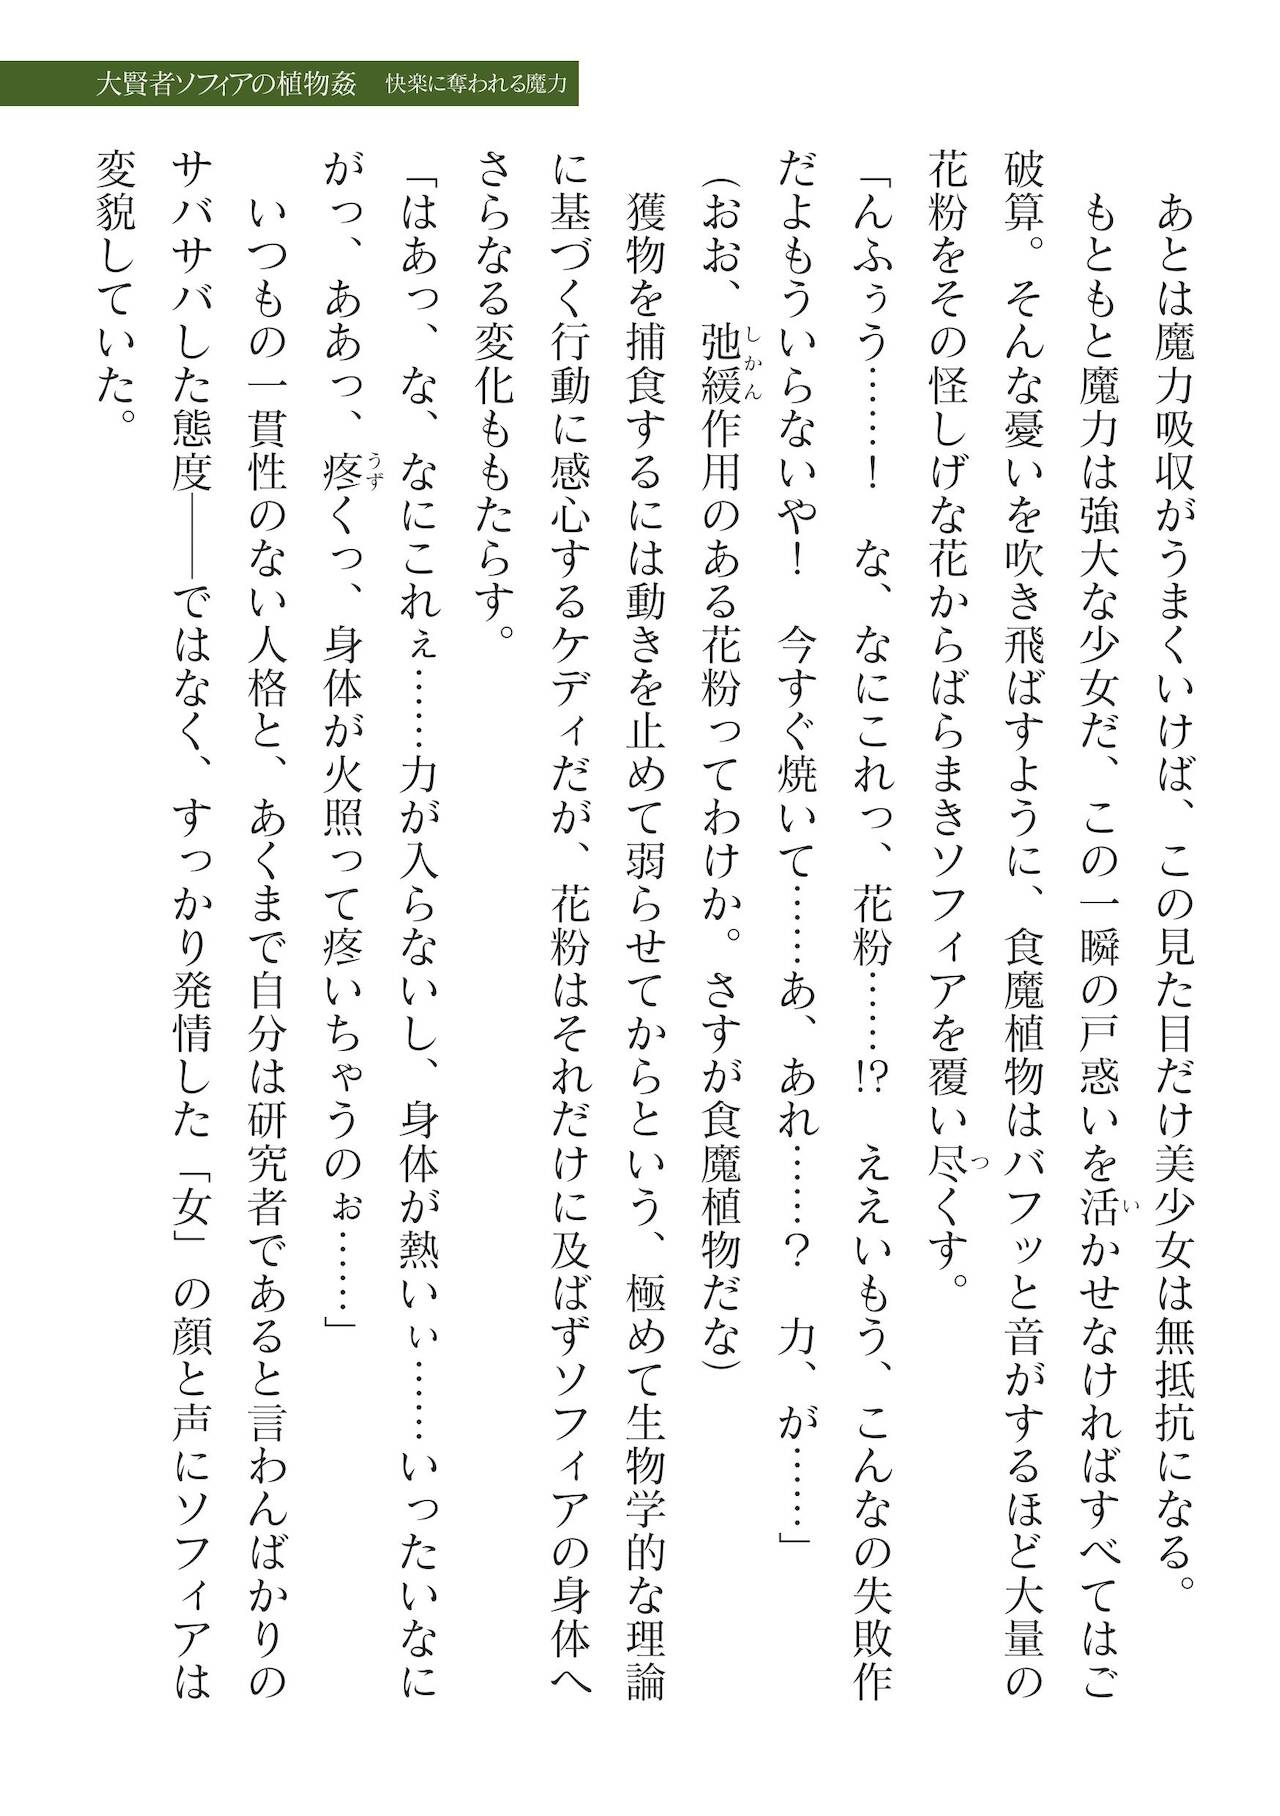 大賢者ソフィアの植物姦　快楽に奪われる魔力
　あとは魔力吸収がうまくいけば、この見た目だけ美少女は無抵抗になる。
　もともと魔力は強大な少女だ、この一瞬の戸惑いを活かせなければすべてはご
破算。そんな憂いを吹き飛ばすように、食魔植物はバフッと音がするほど大量の
花粉をその怪しげな花からばらまきソフィアを覆い尽くす。
「んふぅう……！　な、なにこれっ、花粉……!?　ええいもう、こんなの失敗作
だよもういらないや！　今すぐ焼いて……あ、あれ……？　力、が……」
（おお、弛緩作用のある花粉ってわけか。さすが食魔植物だな）
　獲物を捕食するには動きを止めて弱らせてからという、極めて生物学的な理論
に基づく行動に感心するケディだが、花粉はそれだけに及ばずソフィアの身体へ
さらなる変化ももたらす。
「はあっ、な、なにこれぇ……力が入らないし、身体が熱いぃ……いったいなに
がっ、ああっ、疼くっ、身体が火照って疼いちゃうのぉ……」
　いつもの一貫性のない人格と、あくまで自分は研究者であると言わんばかりの
サバサバした態度――ではなく、すっかり発情した「女」の顔と声にソフィアは
変貌していた。